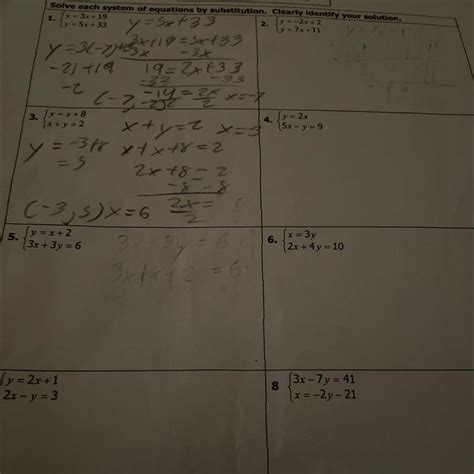 Solve each system of equations by substitution. Clearly identify your solution.
1. y − 3x + 19
y − 5x + 33
y = 5x + 33
3x + 19 = 5x + 33
-3x -3x
19 = 2x + 33
-33 -33
-14 = 2x
2
x = -7
y = 3(-7) + 19
-21 + 19
-2
2. y = −2x + 2
y = 7x + 11
3. y = x + 8
x + y = 2
x + y = 2
x + x + 8 = 2
2x + 8 = 2
-8 -8
2x =
2
y = -3+8
= 5
(-3, 5) x = 6
4. y = 2x
5x − y = 9
5. y = x + 2
3x + 3y = 6
3x + 3y = 6
6. x = 3y
2x + 4y = 10
y = 2x + 1
2x − y = 3
8 3x − 7y = 41
x = −2y − 21